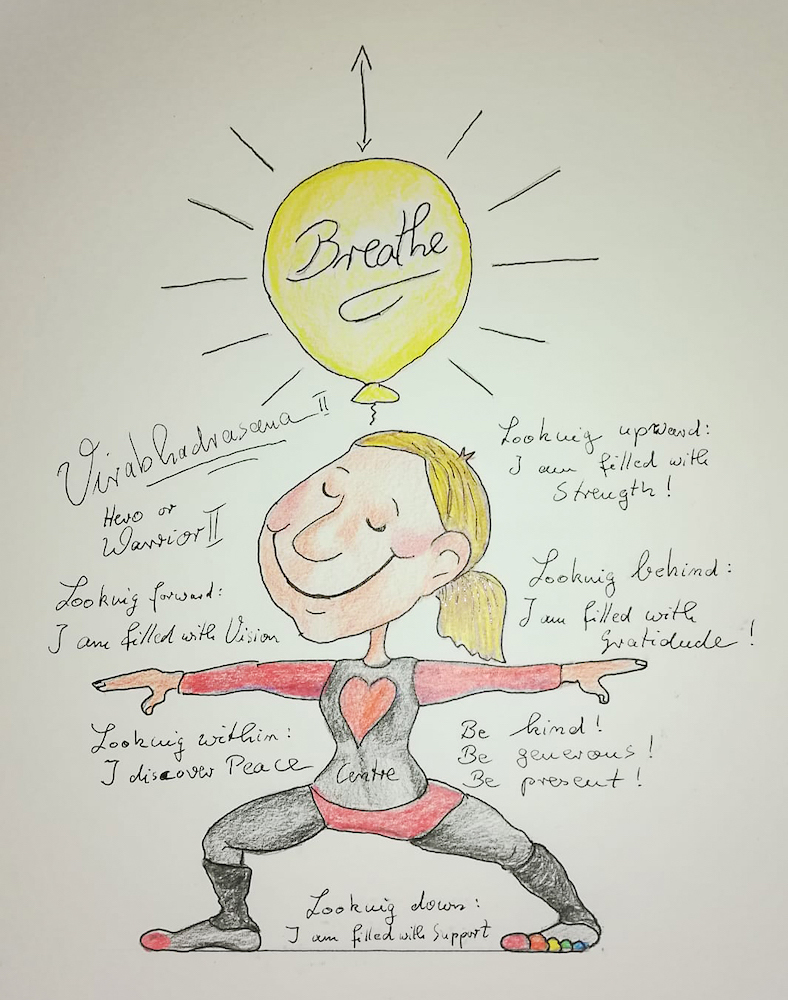 Breathe
Virabhadrasana II
Hero or
Warrior II
Looking upward:
I am filled with
Strength!
Looking forward:
I am filled with Vision
Looking behind:
I am filled with
Gratidude!
Looking within:
I discover Peace
Centre
Be kind!
Be generous!
Be present!
Looking down:
I am filled with Support